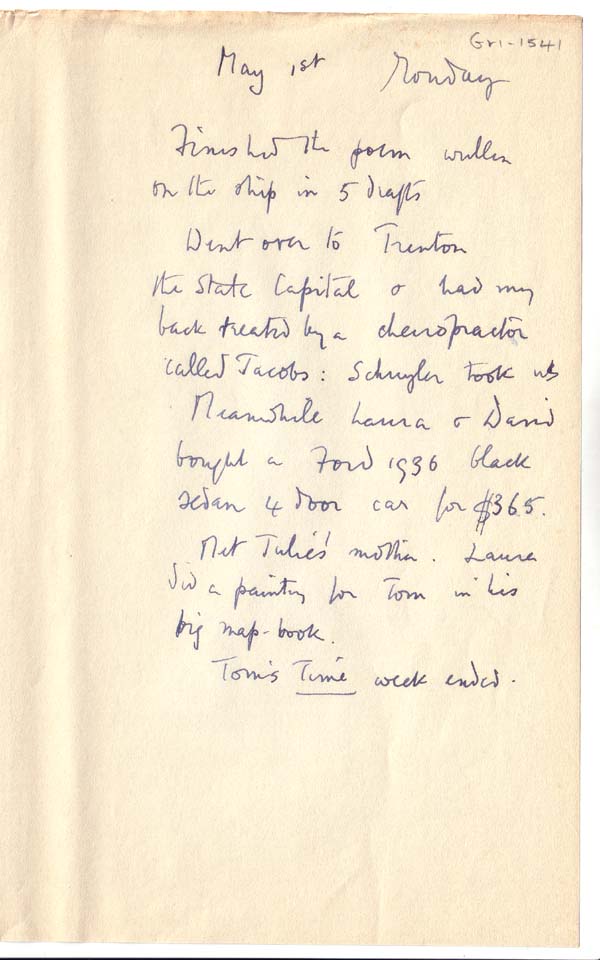 Gr1-1541
May 1st Monday
Finished the poem written
on the ship in 5 drafts
Went over to Trenton
the State Capital & had my
back treated by a cheiropractor
called Jacobs: Schuyler took us
Meanwhile Laura & David
bought a Ford 1936 black
sedan 4 door car for $365.
Met Julie's mother. Laura
did a painting for Tom in his
big map-book.
Tom's Time week ended.